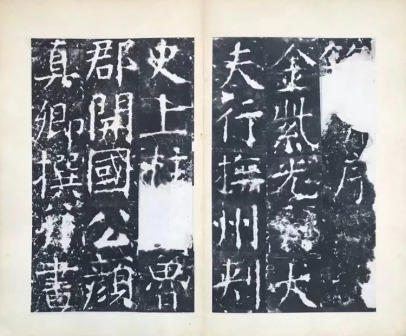 序
金紫光祿大
夫行撫州刺
史上柱魯
郡開國公顏
真卿撰并書